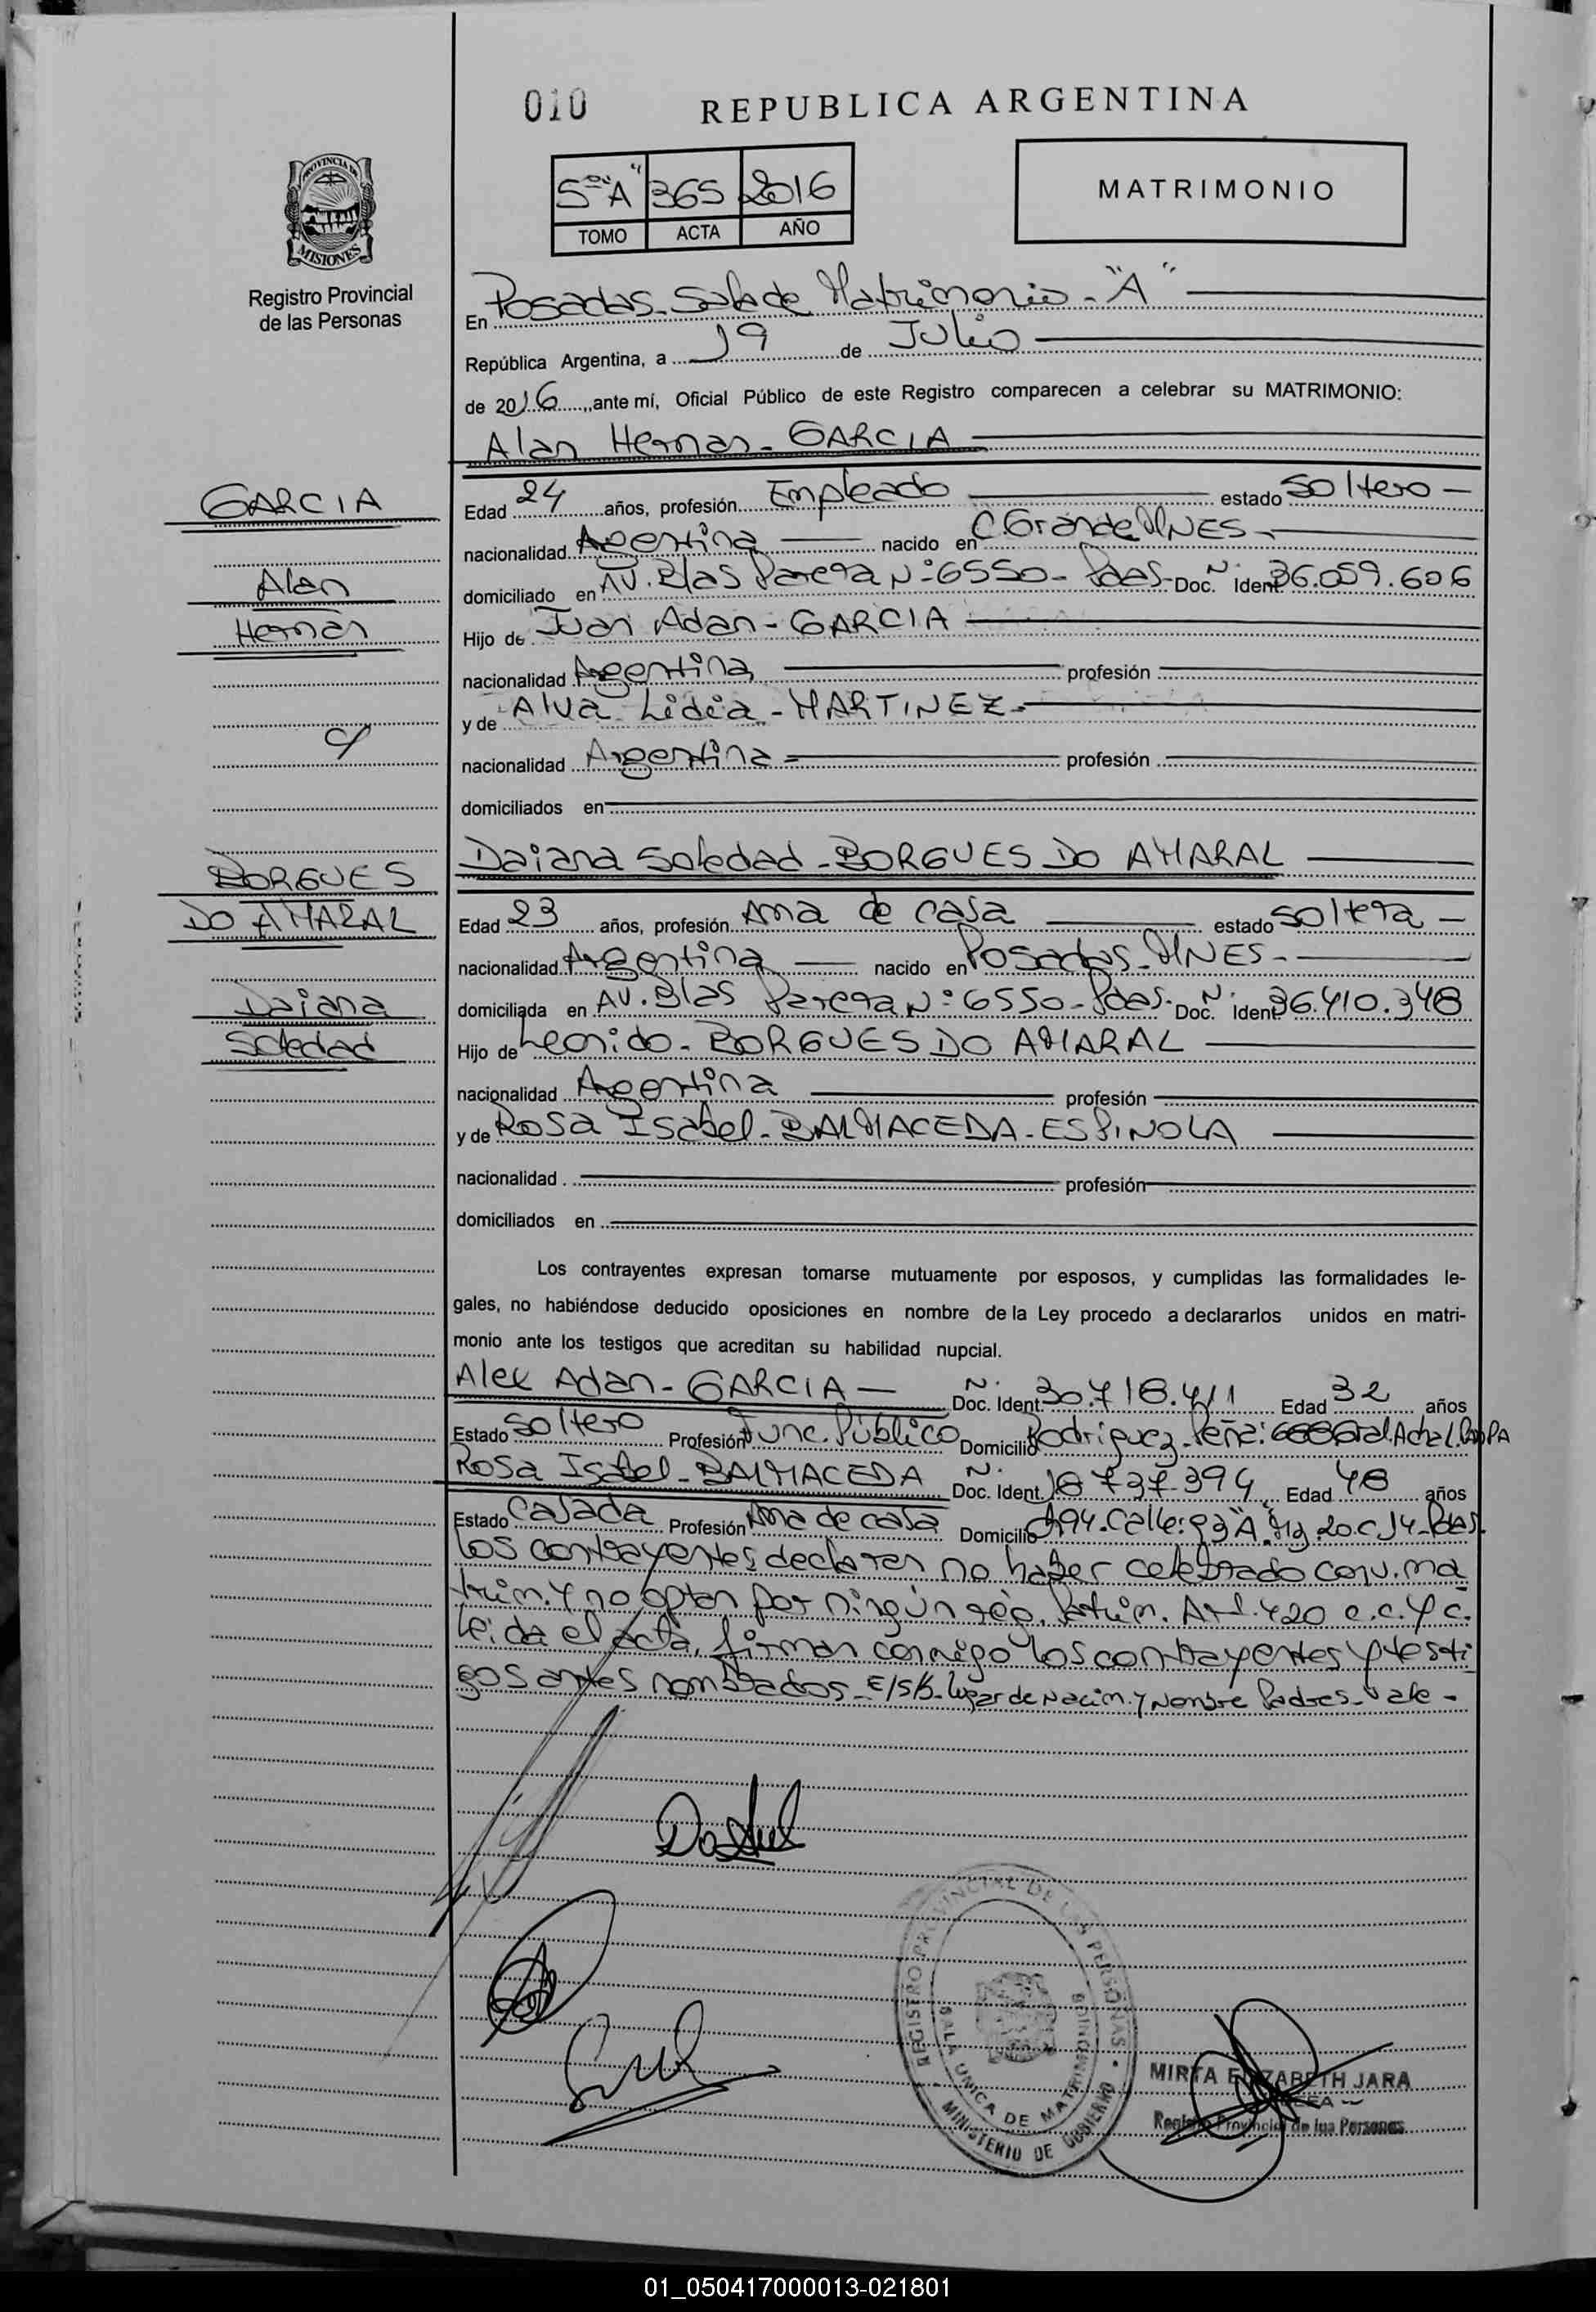 010
REPUBLICA ARGENTINA
PROVINCIA DE
MISIONES
Registro Provincial
de las Personas
5to "A" 365 2016
TOMO ACTA AÑO
MATRIMONIO
En Posadas - Sala de Matrimonio - "A"
República Argentina, a 19 de Julio
de 2016, ante mí, Oficial Público de este Registro comparecen a celebrar su MATRIMONIO:
Alan Hernan - GARCIA
GARCIA
Alan
Hernan
c/
BORGUES
DO AMARAL
Daiana
Soledad
Edad 24 años, profesión Empleado estado Soltero -
nacionalidad Argentina nacido en C. Grande MNES -
domiciliado en AV. Blas Parera Nº 6550 - Pdas - Doc. N. Ident 36.059.606
Hijo de Juan Adan - GARCIA
nacionalidad Argentina profesión
y de Alva Lidia - MARTINEZ -
nacionalidad Argentina profesión
domiciliados en
Daiana Soledad - BORGUES DO AMARAL
Edad 23 años, profesión Ama de casa estado soltera -
nacionalidad Argentina nacido en Posadas - MNES -
domiciliada en AV. Blas Parera Nº 6550 - Pdas - Doc. N. Ident 36.410.348
Hijo de Leonido - BORGUES DO AMARAL
nacionalidad Argentina profesión
y de Rosa Isabel - BALMACEDA - ESPINOLA
nacionalidad profesión
domiciliados en
Los contrayentes expresan tomarse mutuamente por esposos, y cumplidas las formalidades le-
gales, no habiéndose deducido oposiciones en nombre de la Ley procedo a declararlos unidos en matri-
monio ante los testigos que acreditan su habilidad nupcial.
Alex Adan - GARCIA - Doc. N. Ident. 30.718.411 Edad 32 años
Estado Soltero Profesión Func. Público Domicilio Rodriguez Peña:
Rosa Isabel - BALMACEDA Doc. N. Ident. 18 737.394 Edad 48 años
Estado Casada Profesión Ama de casa Domicilio Calle: 93 "A" Mz. 20. C 14 - Pdas.
Los contrayentes declaran no haber celebrado conv. ma
trim. y no optan por ningún reg. Patrim. Art. 420 c.c. y c.
Leida el acta, firman conmigo los contrayentes y testi
gos antes nombrados - E/S/B - lugar de Nacim. y Nombre Padres - Vale -
REGISTRO PROVINCIAL DE LAS PERSONAS
SALA UNICA DE MATRIMONIOS
MINISTERIO DE GOBIERNO
MIRTA ELIZABETH JARA
Registro Provincial de las Personas
01_050417000013-021801